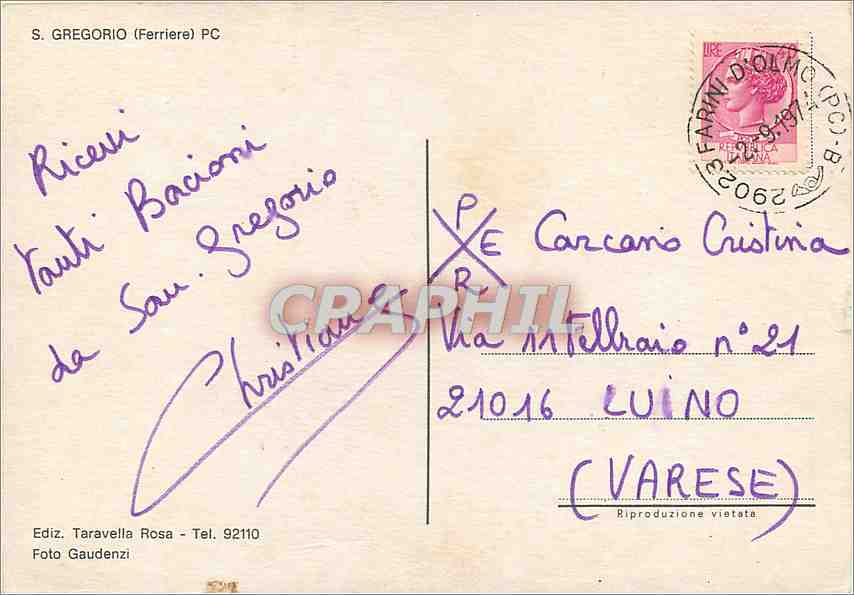 S. GREGORIO (Ferriere) PC
LIRE 40
REPUBBLICA
ITALIANA
29023 FARINI D'OLMO (PC) - B
Ricevi
tanti Bacioni
da San. Gregorio
Christian
P
E
R
Carcano Cristina
Via 11 Febbraio n° 21
21016 LUINO
(VARESE)
Riproduzione vietata
Ediz. Taravella Rosa - Tel. 92110
Foto Gaudenzi
CRAPHIL